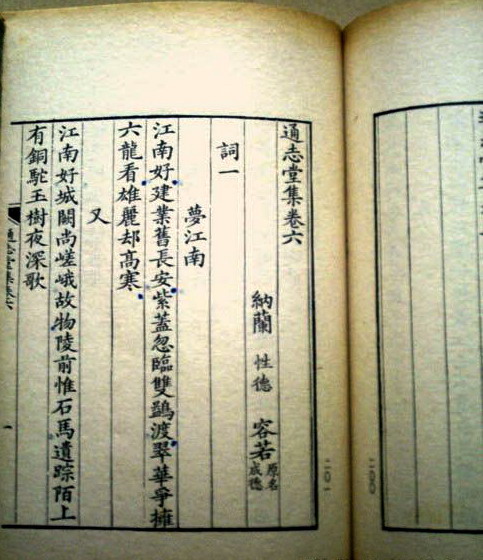 通志堂集卷六
納蘭 性德 容若 原名成德
詞一
夢江南
江南好建業舊長安紫蓋忽臨雙鷁渡翠華爭擁
六龍看雄麗却高寒
又
江南好城闕尚嵯峨故物陵前惟石馬遺踪陌上
有銅駝玉樹夜深歌
通志堂集卷六
一
二〇一
二〇〇